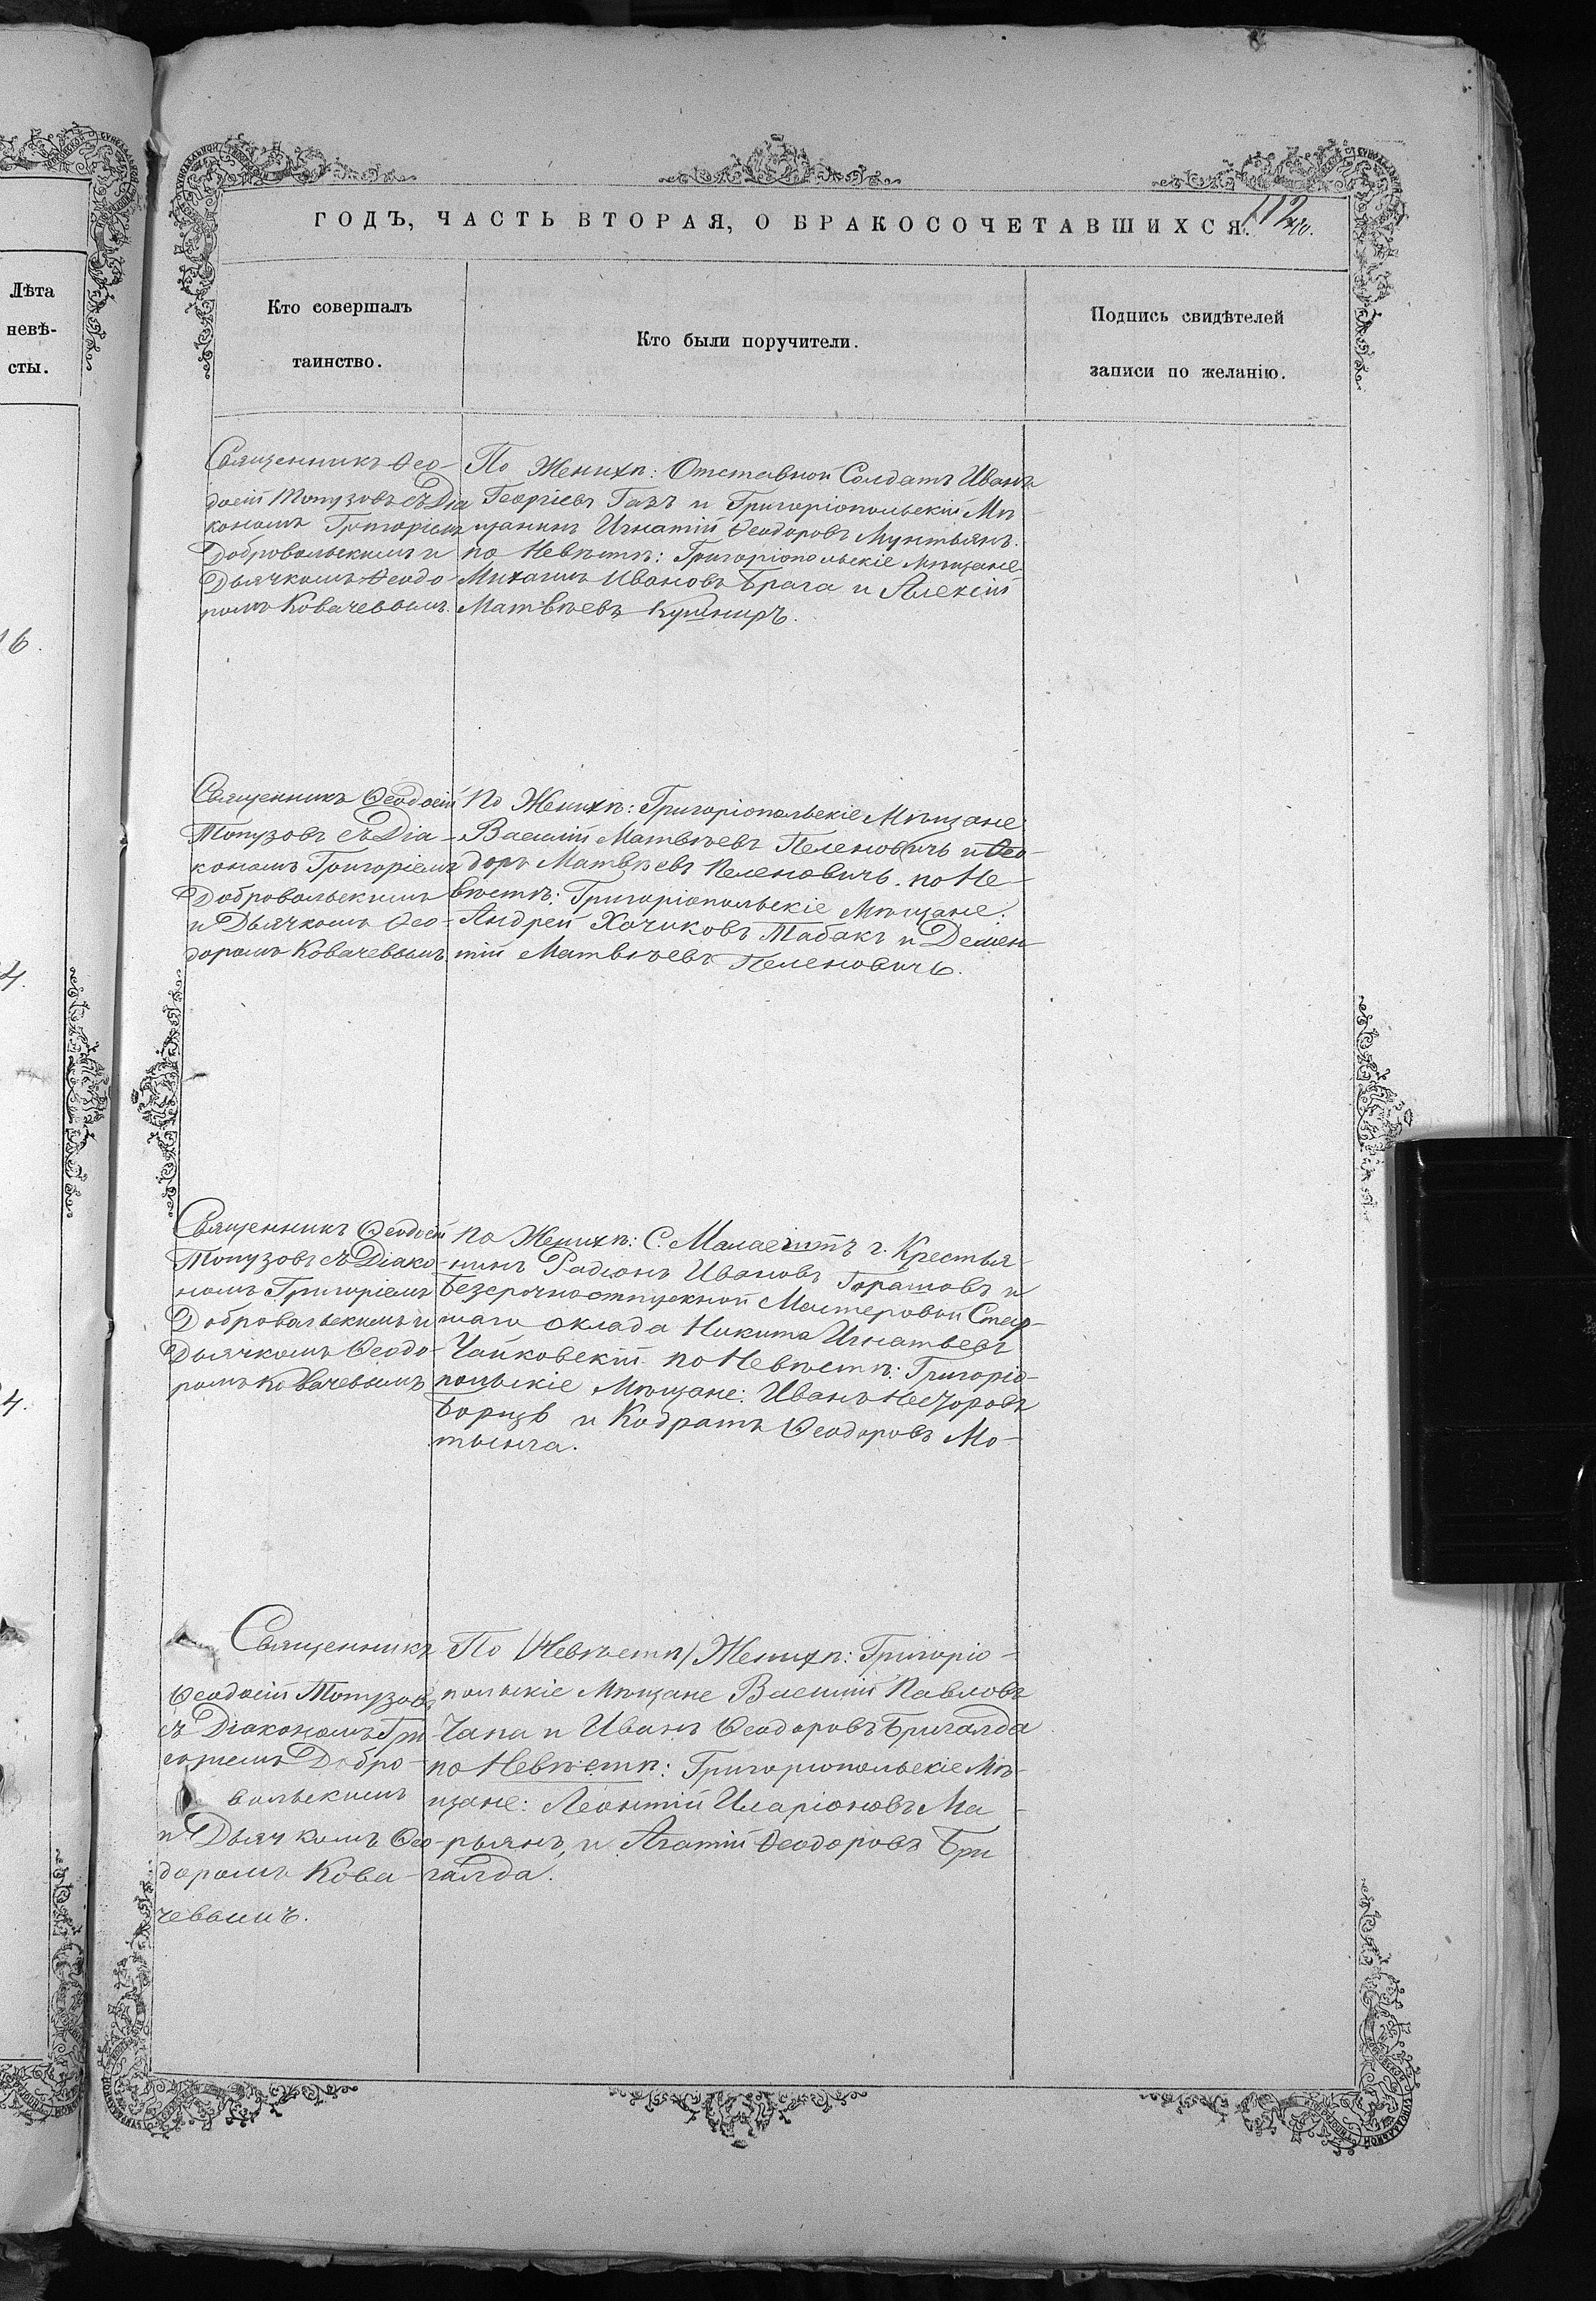 Лѣта
невѣ-
сты.
16.
4.
4.
ГОДЪ, ЧАСТЬ ВТОРАЯ, О БРАКОСОЧЕТАВШИХСЯ.
112
Кто совершалъ
таинство.
Кто были поручители.
Подпись свидѣтелей
записи по желанію.
Священникъ Ѳео-
досій Топузовъ съ Діа
кономъ Григоріемъ
Добровольскимъ и
Дьячкомъ Ѳеодо-
ромъ Ковачевымъ.
По Женихѣ: Отставной Солдатъ Иванъ
Георгіевъ Газъ и Григоріопольскій Мѣ
щанинъ Игнатій Ѳеодоровъ Мунтьянъ.
по Невѣстѣ: Григоріопольскіе Мѣщане
Михаилъ Ивановъ Брага и Алексій
Матвѣевъ Кушниръ.
Священникъ Ѳеодосій
Топузовъ съ Діа-
кономъ Григоріемъ
Добровольскимъ
и Дьячкомъ Ѳео-
доромъ Ковачевымъ
По Женихѣ: Григоріопольскіе Мѣщане
Василій Матвѣевъ Пеленовичъ и Ѳео-
доръ Матвѣевъ Пеленовичъ. по Не-
вѣстѣ: Григоріопольскіе Мѣщане:
Андрей Хачиковъ Табакъ и Демен-
тій Матвѣевъ Пеленовичъ.
Священникъ Ѳеодосій
Топузовъ съ Діако-
номъ Григоріемъ
Добровольскимъ и
Дьячкомъ Ѳеодо-
ромъ Ковачевымъ
По Женихѣ: С. Малаештъ г. Крестья-
нинъ Радіонъ Ивановъ Горашовъ и
Безсрочноотпускной Мастеровой Стар-
шаго оклада Никита Игнатьевъ
Чайковскій. по Невѣстѣ: Григоріо-
польскіе Мѣщане: Иванъ
Борщъ и Кодратъ Ѳеодоровъ Мо-
тынга.
Священникъ
Ѳеодосій Топузовъ
съ Діакономъ Гри
горіемъ Добро-
вольскимъ
и Дьячкомъ Ѳео-
доромъ Кова-
чевымъ.
По /Невѣстѣ/ Женихѣ: Григоріо-
польскіе Мѣщане Василій Павловъ
Чапа и Иванъ Ѳеодоровъ Бригалда
по Невѣстѣ: Григоріопольскіе Мѣ-
щане: Леонтій Иларіоновъ Ма-
рьянъ, и Агатій Ѳеодоровъ Бри
галда.